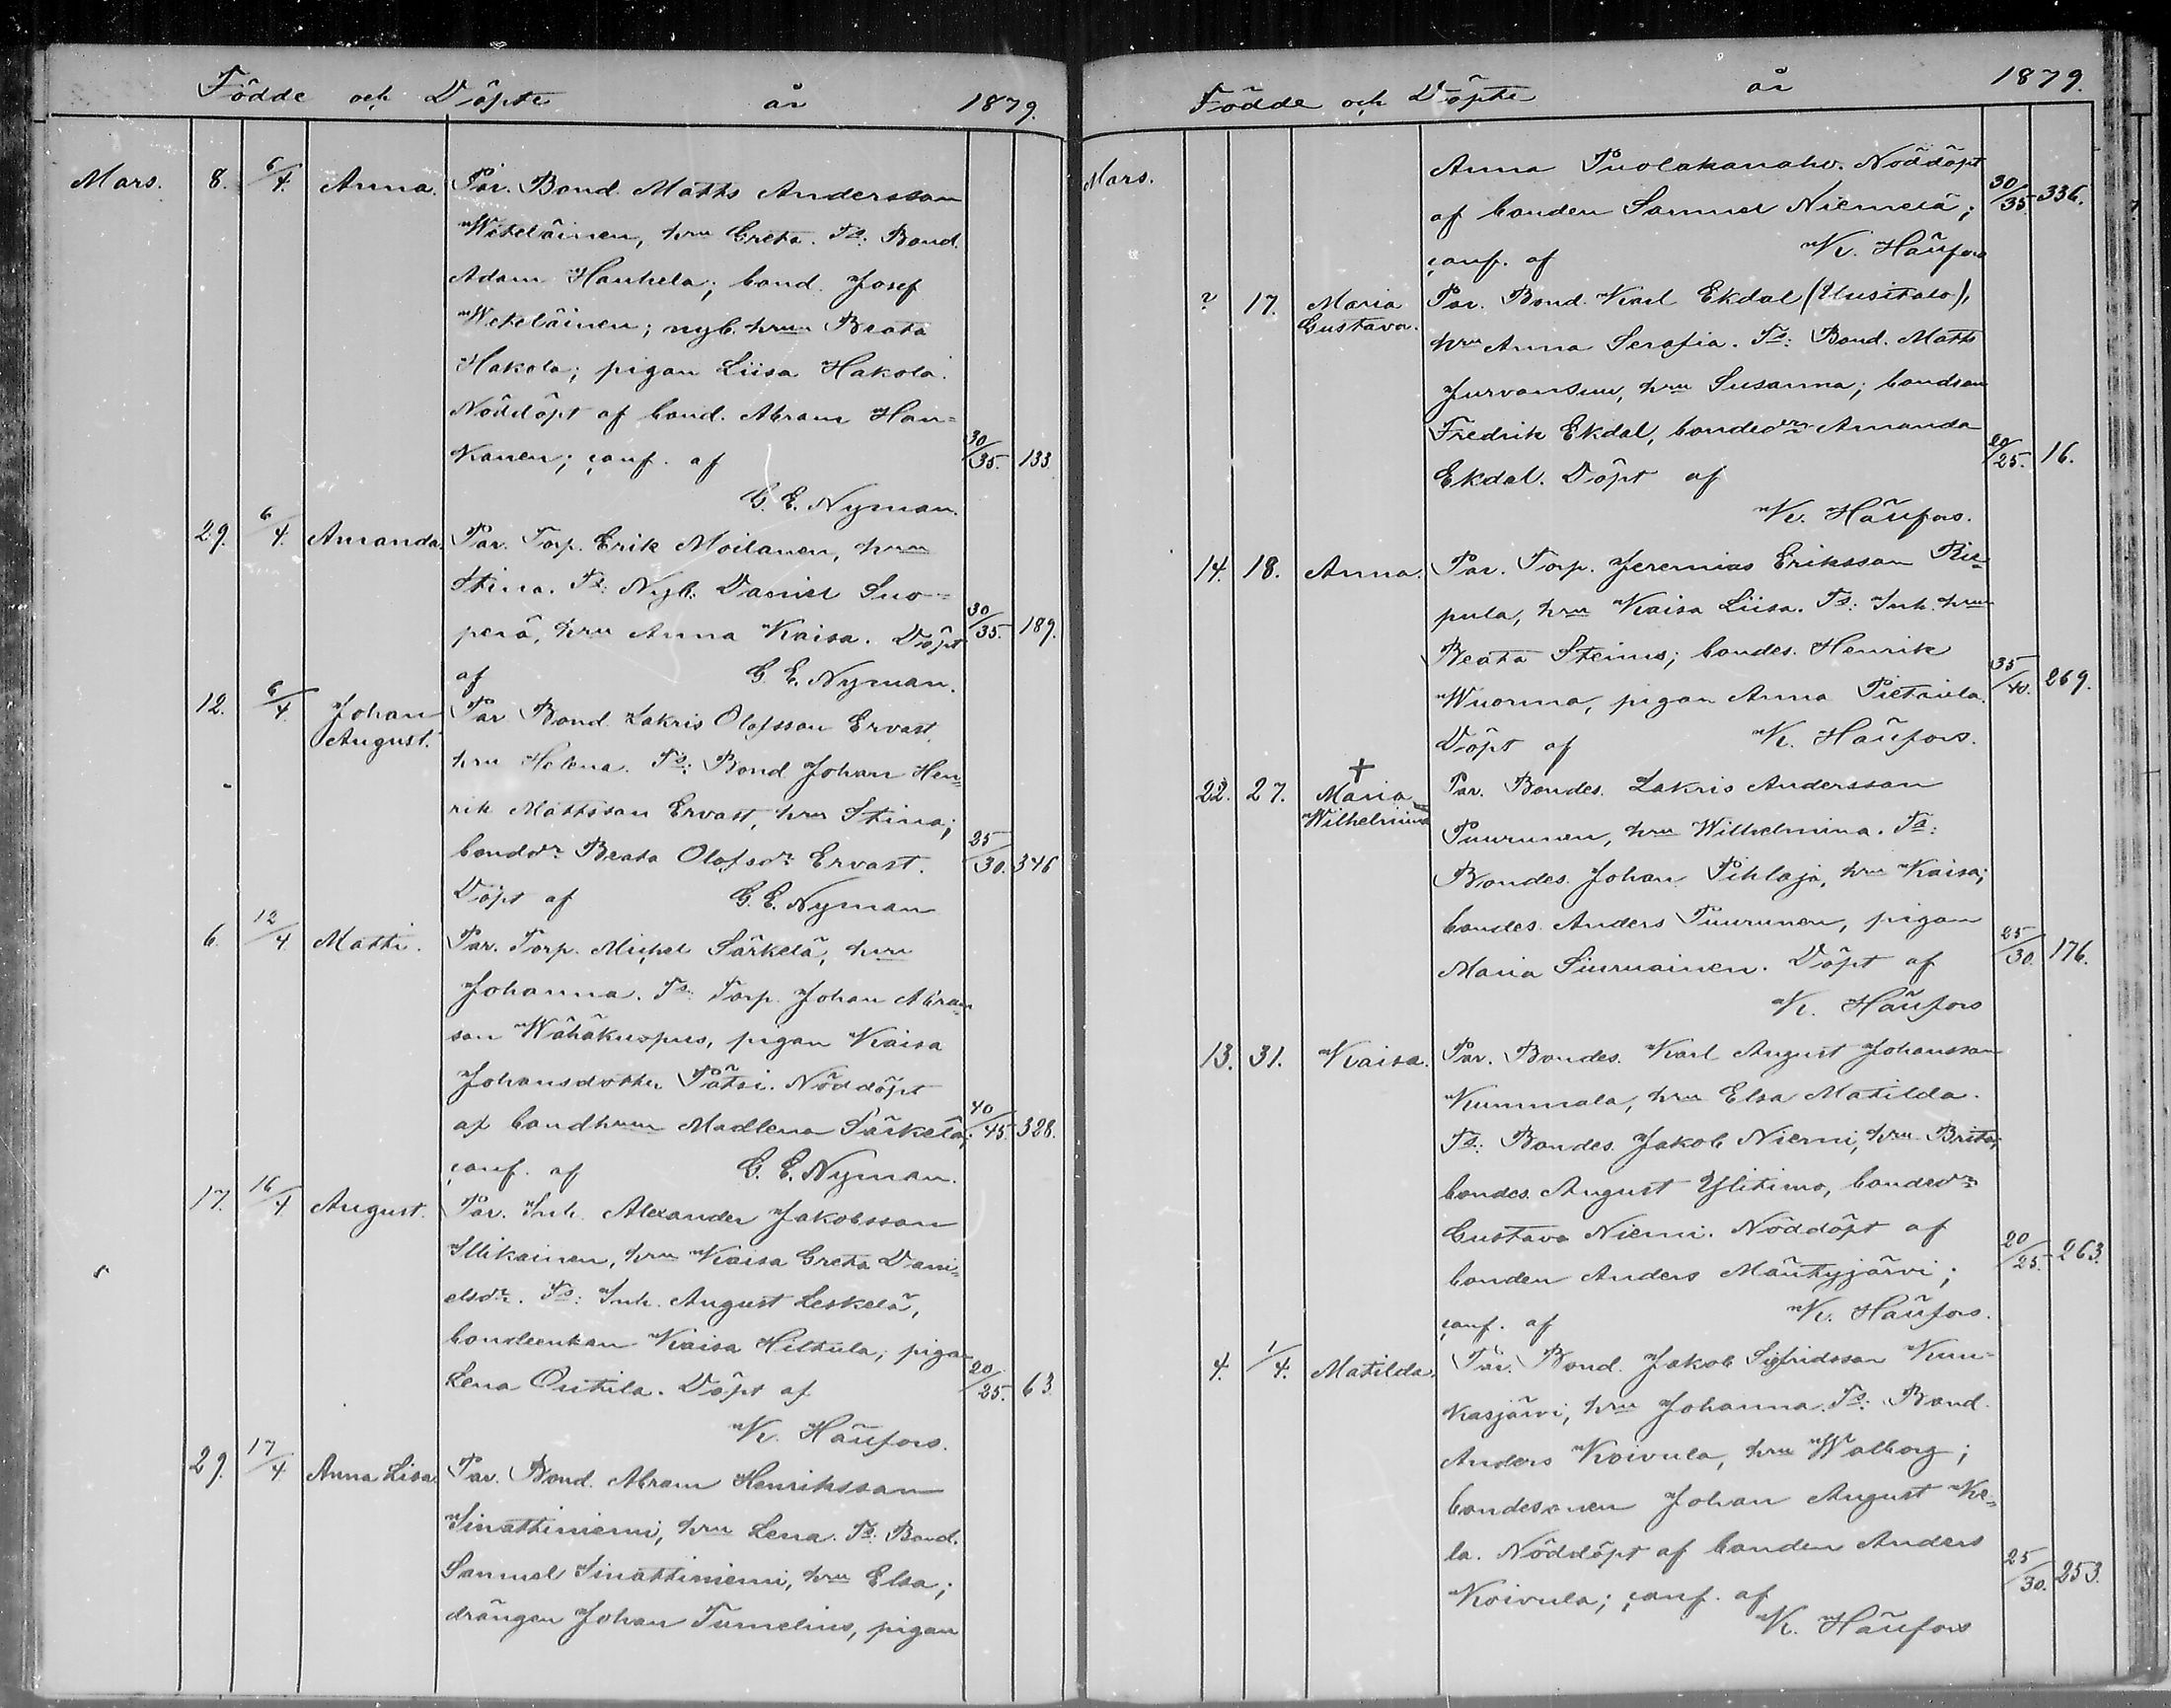 Födde och Döpte år 1879.
Mars. 8. 6/4. Anna. Par. Bond. Matts Andersson
Wekeläinen, hru Greta. Ts: Bond.
Adam Hauhela; bond. Josef
Wekeläinen; nyb. hrun Beata
Hakola; pigan Liisa Hakola.
Nöddöpt af bond. Abram Han-
kanen; conf. af 30/35. 133.
G. E. Nyman.
29. 6/4. Amanda. Par. Torp. Erik Moilanen, hrun
Stina. Ts: Nyb. Daniel Suo-
perä, hru Anna Kaisa. Döpt 30/35. 189.
af G. E. Nyman.
12. 6/4. Johan August. Par Bond. Zakris Olofsson Ervast,
hru Helena. Ts: Bond Johan Hen-
rik Mattsson Ervast, hru Stina;
bonddr Beata Olofsdr Ervast. 25/30. 346
Döpt af G. E. Nyman
6. 12/4 Matti. Par. Torp. Michel Särkelä, hru
Johanna. Ts: Torp. Johan Abram-
son Wähäkuopus, pigan Kaisa
Johansdotter Pätsi. Nöddöpt
af bondhrun Madlena Särkelä; 40/45. 328.
conf. af G. E. Nyman.
17. 16/4 August. Par. Inh. Alexander Jakobsson
Illikainen, hru Kaisa Greta Dani-
elsdr. Ts: Inh. August Leskelä,
bondeenkan Kaisa Hiltula; pigan
Lena Outila. Döpt af 20/25. 63.
K. Häufors.
29. 17/4. Anna Lisa Par. Bond. Abram Henriksson
Sinattiniemi, hru Lena. Ts: Bond.
Samuel Sinattiniemi, hru Elsa;
drängen Johan Tumelius, pigan
Födde och Döpte år 1879.
Mars. Anna Puolakanaho. Nöddöpt
af bonden Samuel Niemelä; 30/35. 336.
conf. af K. Häufors
? 17. Maria Gustava. Par. Bond. Karl Ekdal (Uusitalo),
hru Anna Serafia. Ts: Bond. Matts
Jurvansuu, hru Susanna; bondson
Fredrik Ekdal, bondedr Amanda
Ekdal. Döpt af 20/25. 16.
K. Häufors.
14. 18. Anna. Par. Torp. Jeremias Eriksson
pula, hru Kaisa Liisa. Ts: Inh. hru
Beata Steinus; bondes. Henrik
Wuorma, pigan Anna Pietarila. 35/40. 269.
Döpt af K. Häufors.
22. 27. + Maria Wilhelmina Par. Bondes. Zakris Andersson
Puurunen, hru Wilhelmina. Ts:
Bondes. Johan Pihlaja, hru Kaisa;
bondes. Anders Puurunen, pigan
Maria Siuruainen. Döpt af 25/30. 176.
K. Häufors
13. 31. Kaisa. Par. Bondes. Karl August Johansson
Kummala, hru Elsa Matilda.
Ts: Bondes. Jakob Niemi, hru Brita;
bondes. August Ylitimo, bondedr
Gustava Niemi. Nöddöpt af
bonden Anders Mäntyjärvi; 20/25. 263.
conf. af K. Häufors.
4. 1/4. Matilda. Par. Bond. Jakob Sigfridsson Kuu-
kasjärvi, hru Johanna. Ts: Bond.
Anders Koivula, hru Walborg;
bondesonen Johan August Ke-
la. Nöddöpt af bonden Anders
Koivula; conf. af 25/30. 253.
K. Häufors